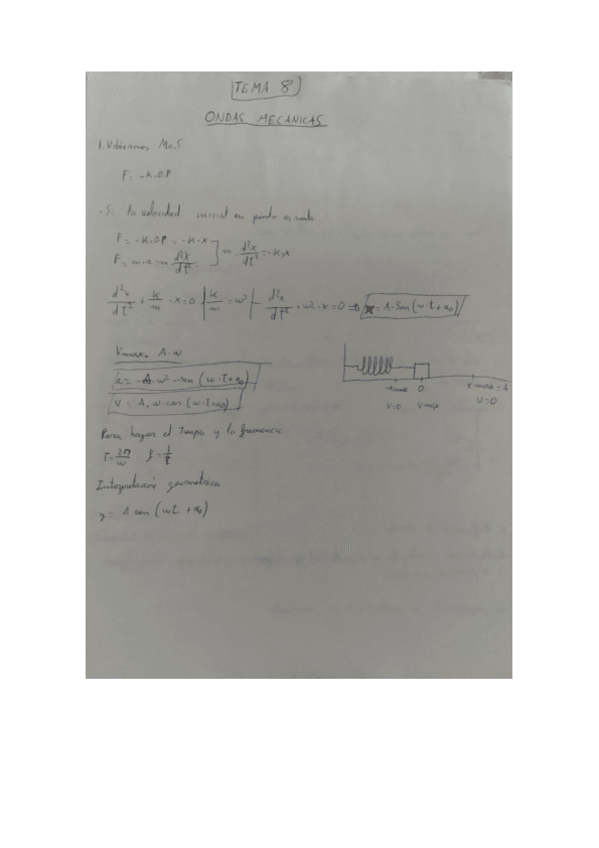 TEMA 8
ONDAS MECANICAS
1. Vibraciones M.A.S
F = -K·O.P
- Si la velocidad inicial en punto es nula
F = -K·O.P = -K·x
F = m·a = m d²x/dt² ] m · d²x/dt² = -K·x
d²x/dt² + K/m · x = 0 | K/m = w² | d²x/dt² + w²·x = 0 ⇒ x = A·Sen(w·t+α₀)
Vmax = A·w
a = -A·w²·sen(w·t+α₀)
V = A·w·cos(w·t+α₀)
-xmax 0 xmax = A
V=0 Vmax V=0
Para hayar el Tiempo y la frecuencia
T = 2π/w f = 1/T
Interpretación geometrica
y = A sen(wt + α₀)